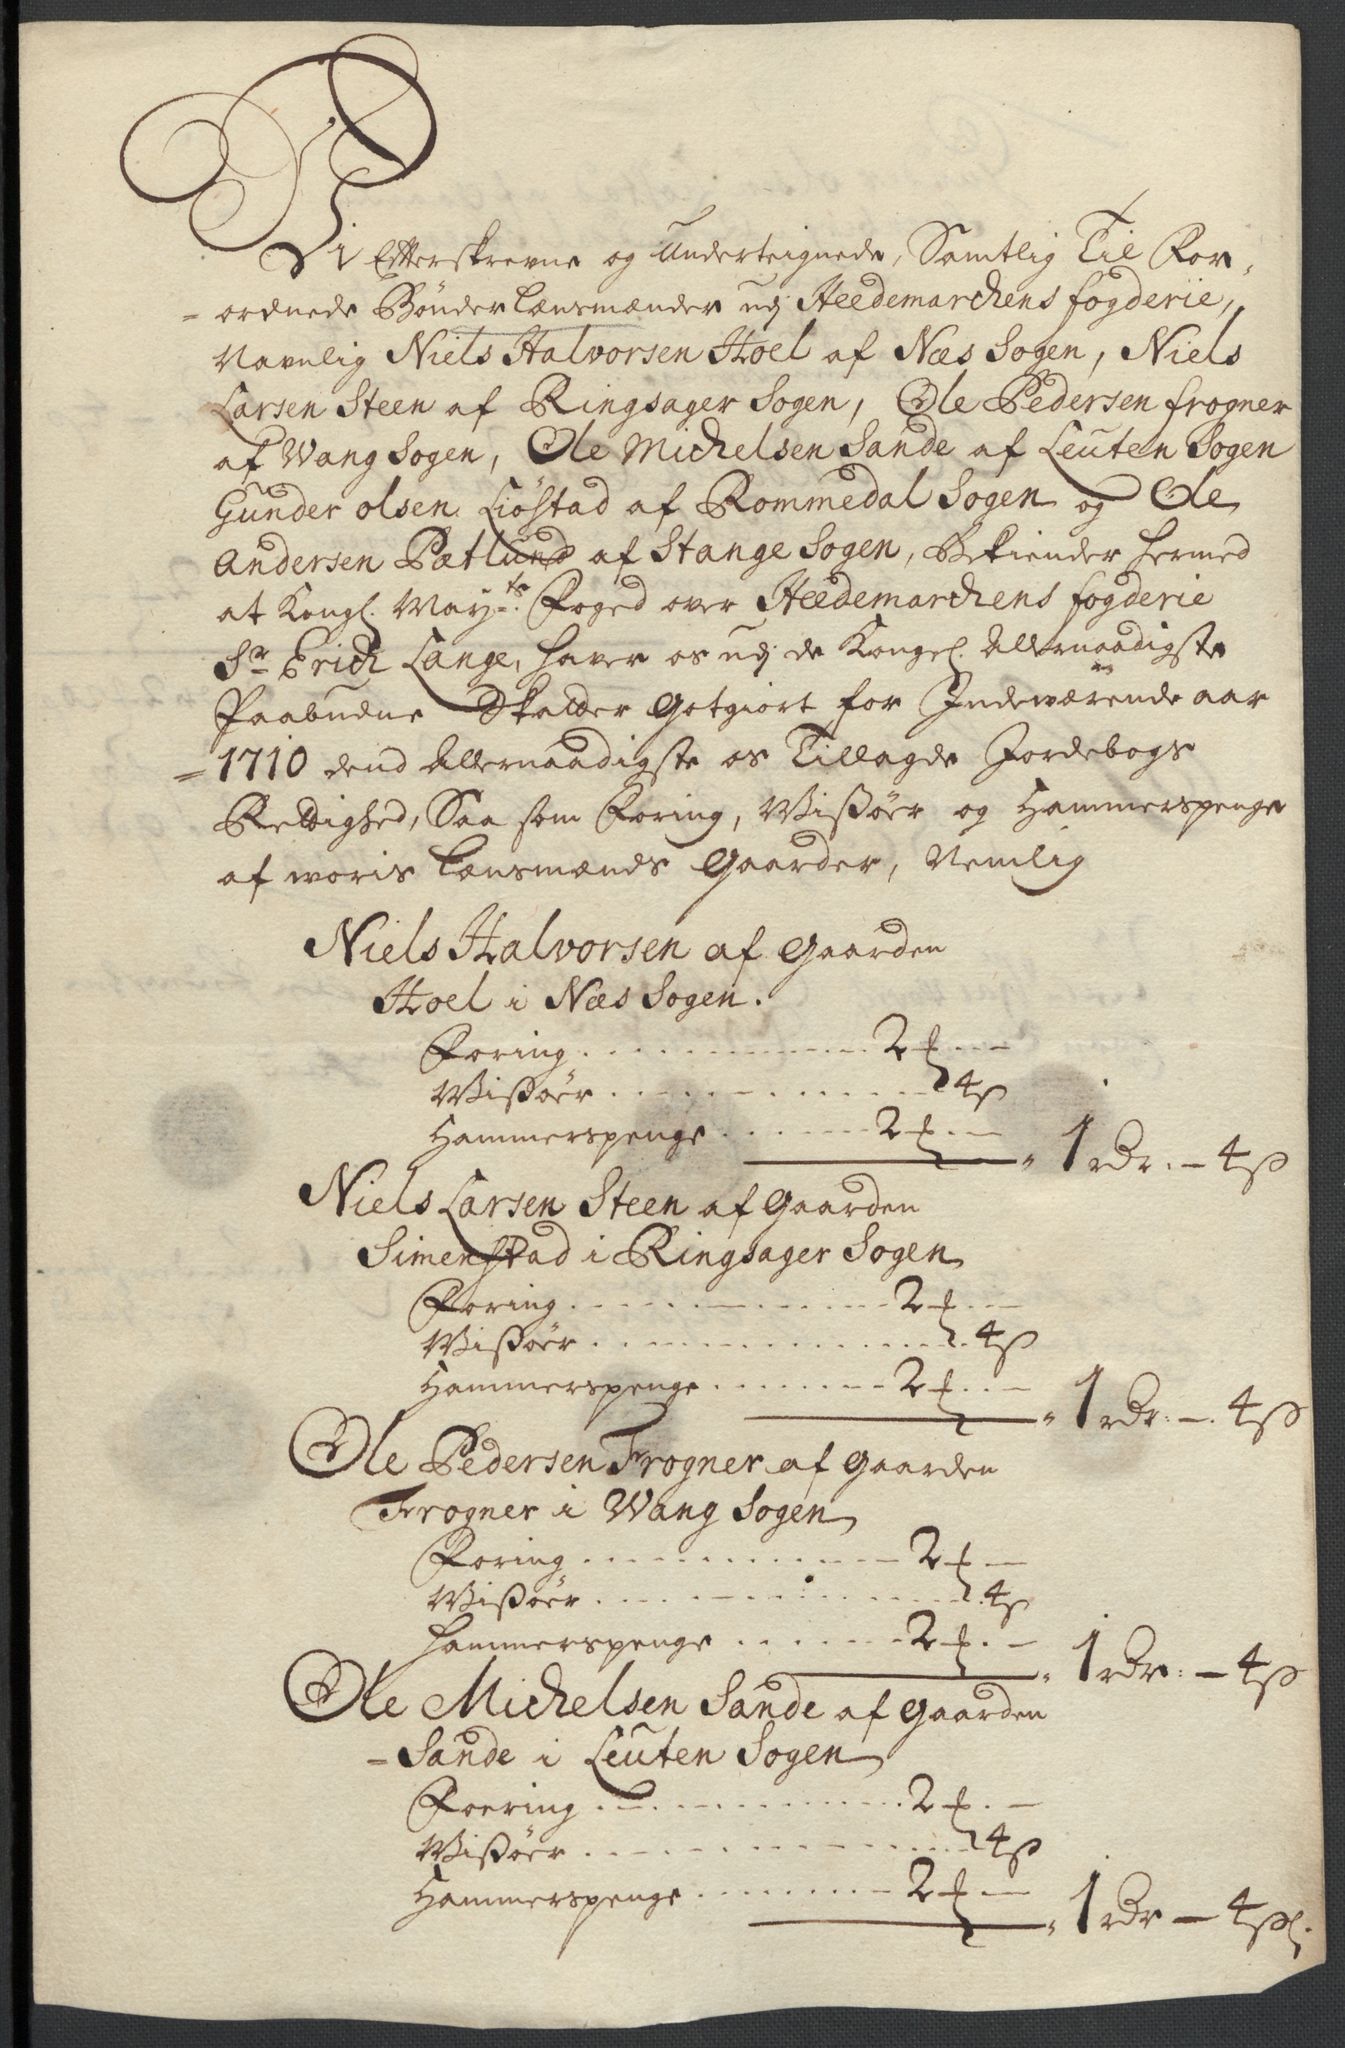 Vi Efterskrevne og Underteignede, Samtlig Til For,
= ordnede Bønder Lænsmænder udj Heedemarchens fogderie,
Navnlig Niels Halvorsen Hoel af Næs Sogen, Niels
Larsen Steen af Ringsager Sogen, Ole Pedersen frogner
af Wang Sogen, Ole Michelsen Sande af Leuten Sogen
Gunder olsen Liøstad af Rommedal Sogen og Ole
Andersen Pætlund af Stange Sogen, Bekiender hermed
at Kongl. May.ts Foged over Heedemarchens fogderie
Sr Erich Lange, haver os udj de Kongel. Allernaadigste
Paabudne Skatter gotgiort for Indeværende aar
= 1710 dend Allernaadigste os Tillagde Jordebogs
Rettighed, Saa som Foring, Wißøer og Hammerspenge
af woris Lænsmænds gaarder, Nemlig
Niels Halvorsen af gaarden
Hoel i Næs Sogen.
Foring . . . . . . . . . . 2 ꝑ . –
Wißøer . . . . . . . . . . 4 ß
Hammerspenge . . . . . 2 ꝑ . – 1 rdr. – 4 ß
Niels Larsen Steen af gaarden
Simenstad i Ringsager Sogen
Foring . . . . . . . . . . 2 ꝑ . –
Wißøer . . . . . . . . . . 4 ß
Hammerspenge . . . . . 2 ꝑ . – 1 rdr: – 4 ß
Ole Pedersen Frogner af gaarden
Frogner i Wang Sogen
Foring . . . . . . . . . . 2 ꝑ –
Wißøer . . . . . . . . . . 4 ß
Hammerspenge . . . . . 2 ꝑ . – 1 rdr: – 4 ß
Ole Michelsen Sande af gaarden
= Sande i Leuten Sogen
Foering . . . . . . . . . . 2 ꝑ . –
Wißøer . . . . . . . . . . 4 ß
Hammerspenge . . . . . 2 ꝑ . – 1 rdr – 4 ßl.